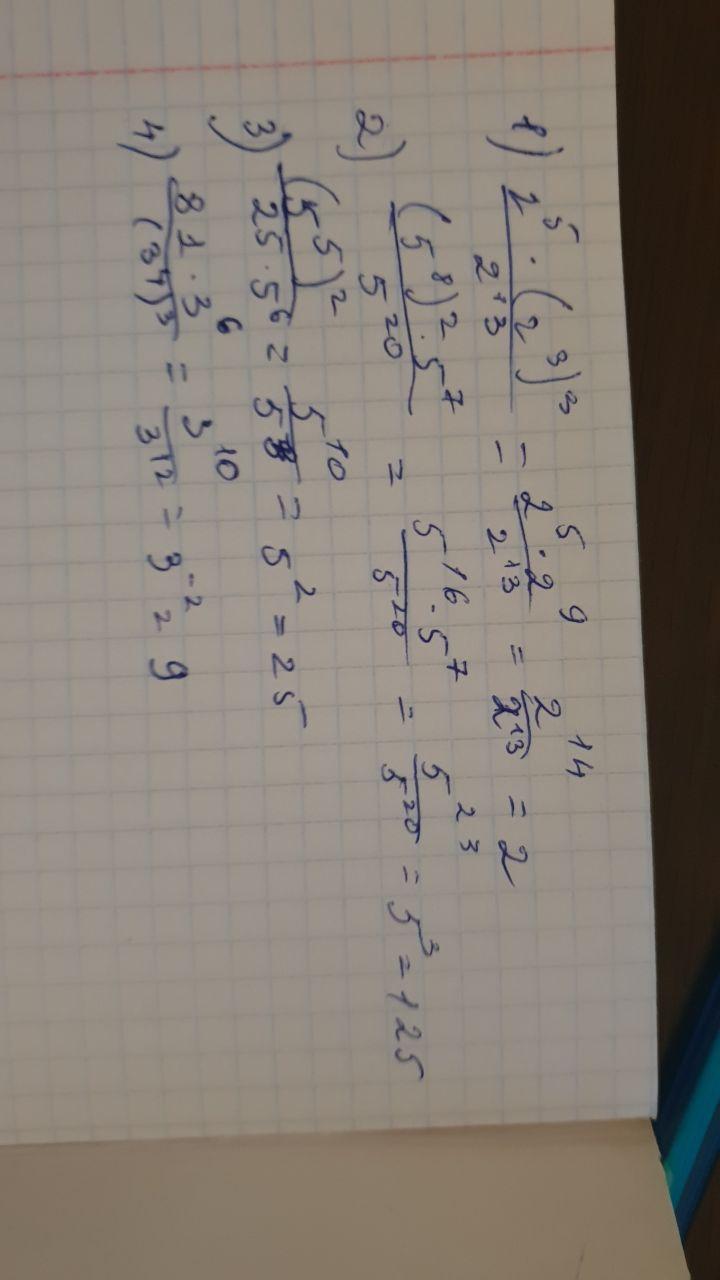 1) (2^5 · (2^3)^3)/(2^13) = (2^5 · 2^9)/(2^13) = 2^14/2^13 = 2
2) ((5^8)^2 · 5^7)/(5^20) = (5^16 · 5^7)/(5^20) = 5^23/5^20 = 5^3 = 125
3) ((5^5)^2)/(25 · 5^6) = 5^10/5^8 = 5^2 = 25
4) (81 · 3^6)/((3^4)^3) = 3^10/3^12 = 3^-2 = 9